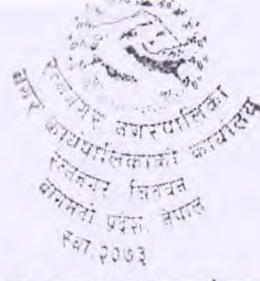 रत्ननगर नगरपालिका
नगर कार्यपालिकाको कार्यालय
रत्ननगर चितवन
बागमती प्रदेश, नेपाल
स्था.२०७३